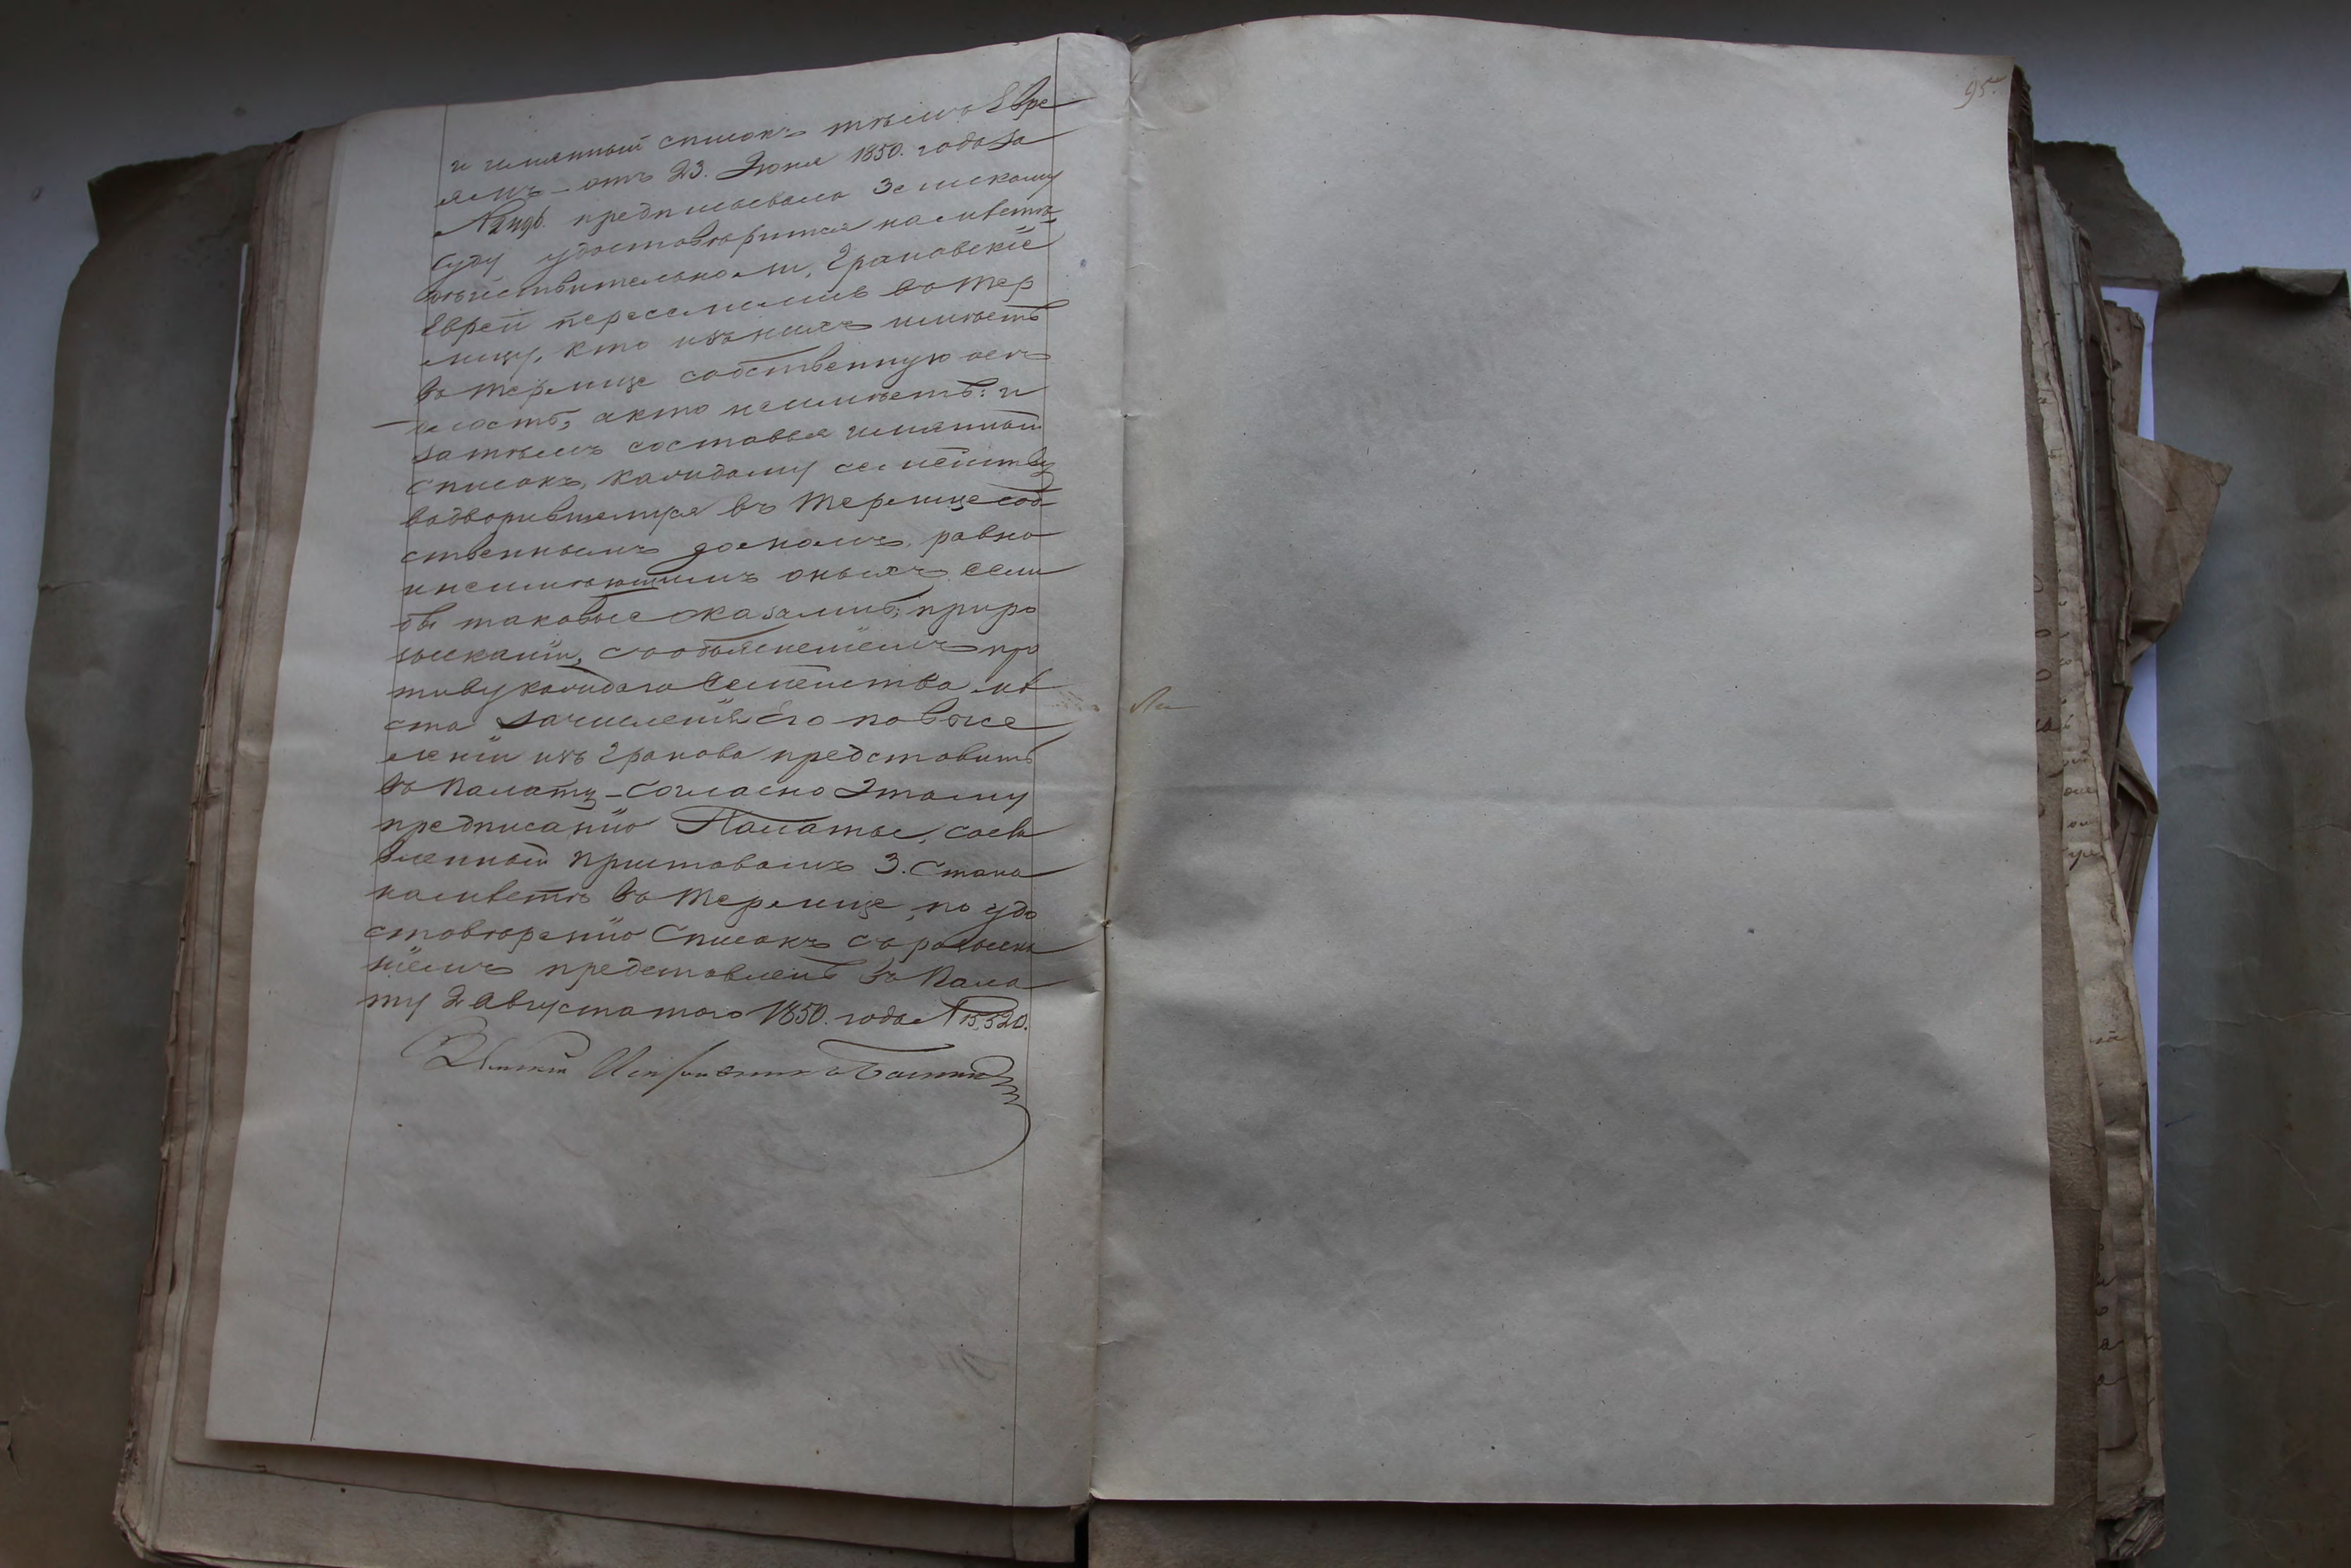 95.
и имянный списокъ тѣмъ Евре
ямъ – отъ 23. Іюня 1850. года за
№ предписывала Земскому
Суду удостовѣрится на мѣстѣ
дѣйствительно ли, Грановскіе
Евреи переселились въ Тер
лицу, кто изъ нихъ имѣетъ
въ Терлице собственную осѣ
лость, а кто неимѣетъ: и
затѣмъ составя имянной
списокъ, каждому семейству
водворившемуся въ Терлице соб
ственнымъ домомъ, равно
и неимѣющимъ оныхъ если
бы таковые оказались, при ро
зысканіи, съ объясненіемъ про
тиву каждаго Семейства мѣ
ста зачисленія его по высе
леніи изъ Гранова представить
въ Палату – согласно этому
предписанію Палаты, состав
вленный Приставомъ 3. Стана
на мѣстѣ въ Терлице, по удо
стовѣренію Списокъ съ розыска
ніемъ представленъ въ Пала
ту 2 Августа того 1850. года № 15,520.
Земскій Исправникъ